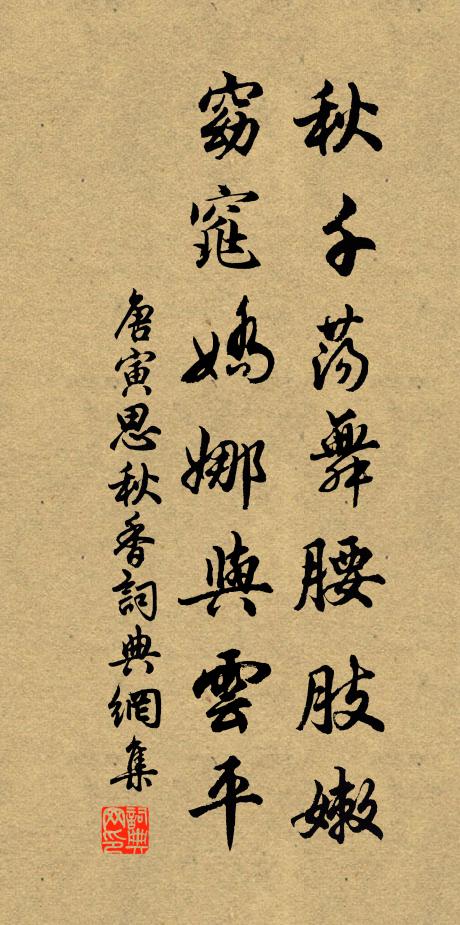 秋千荡舞腰肢嫩
窈窕嬌娜與雲平
唐寅思秋香詞典網集
詞典网印